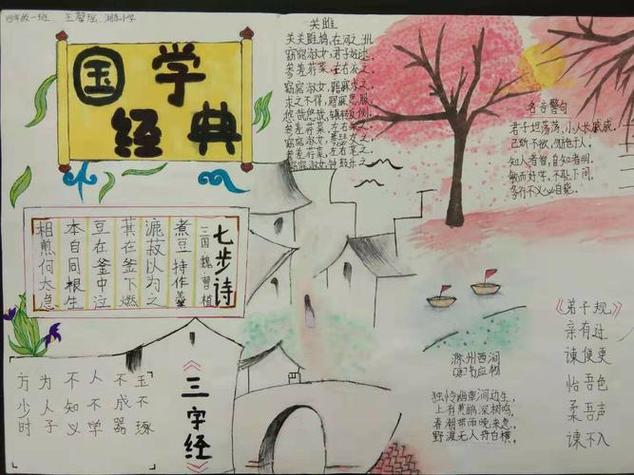 四年级一班
国学
经典
关雎
关关雎鸠,在河之洲
窈窕淑女,君子好逑
参差荇菜,左右流之
窈窕淑女,寤寐求之
求之不得,寤寐思服
悠哉悠哉,辗转反侧
参差荇菜,左右采之
窈窕淑女,琴瑟友之
参差荇菜,左右芼之
窈窕淑女,钟鼓乐之
名言警句
君子坦荡荡,小人长戚戚。
己所不欲,勿施于人。
知人者智,自知者明。
敏而好学,不耻下问。
多行不义必自毙。
七步诗
三国 魏 曹植
煮豆持作羹
漉菽以为之
萁在釜下燃
豆在釜中注
本自同根生
相煎何太急
《三字经》
玉不琢
不成器
人不学
不知义
为人子
方少时
滁州西涧
(唐)韦应物
独怜幽草涧边生,
上有黄鹂深树鸣。
春潮带雨晚来急,
野渡无人舟自横。
《弟子规》
亲有过
谏使更
怡吾色
柔吾声
谏不入